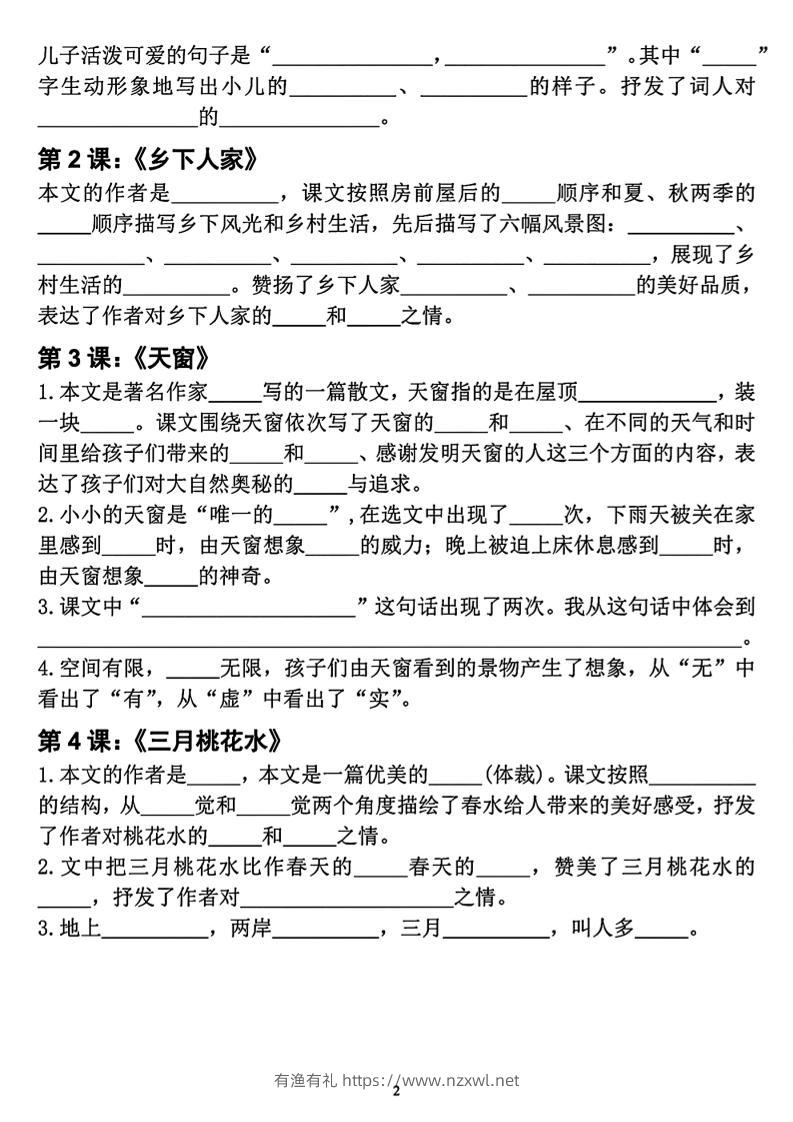 儿子活泼可爱的句子是“_______________,_______________”。其中“_____”
字生动形象地写出小儿的__________、__________的样子。抒发了词人对
_______________的_______________。
第 2 课：《乡下人家》
本文的作者是__________，课文按照房前屋后的_____顺序和夏、秋两季的
_____顺序描写乡下风光和乡村生活，先后描写了六幅风景图：__________、
__________、__________、__________、__________、__________，展现了乡
村生活的__________。赞扬了乡下人家__________、__________的美好品质，
表达了作者对乡下人家的_____和_____之情。
第 3 课：《天窗》
1.本文是著名作家_____写的一篇散文，天窗指的是在屋顶_____________，装
一块_____。课文围绕天窗依次写了天窗的_____和_____、在不同的天气和时
间里给孩子们带来的_____和_____、感谢发明天窗的人这三个方面的内容，表
达了孩子们对大自然奥秘的_____与追求。
2.小小的天窗是“唯一的_____”,在选文中出现了_____次，下雨天被关在家
里感到_____时，由天窗想象_____的威力；晚上被迫上床休息感到_____时，
由天窗想象_____的神奇。
3.课文中“____________________”这句话出现了两次。我从这句话中体会到
__________________________________________________________________。
4.空间有限，_____无限，孩子们由天窗看到的景物产生了想象，从“无”中
看出了“有”，从“虚”中看出了“实”。
第 4 课：《三月桃花水》
1.本文的作者是_____，本文是一篇优美的_____(体裁)。课文按照__________
的结构，从_____觉和_____觉两个角度描绘了春水给人带来的美好感受，抒发
了作者对桃花水的_____和_____之情。
2.文中把三月桃花水比作春天的_____春天的_____，赞美了三月桃花水的
_____，抒发了作者对____________________之情。
3.地上__________，两岸__________，三月__________，叫人多_____。
有渔有礼 https://www.nzxwl.net
2